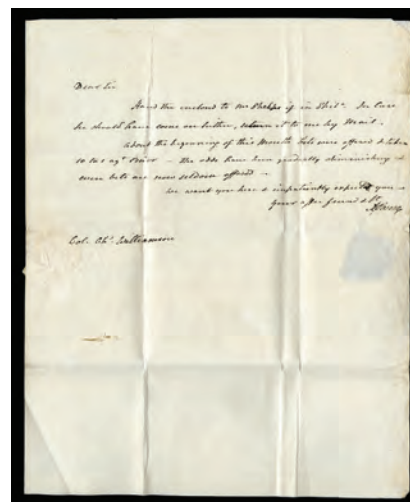 Dear Sir
Hand the enclosed to Mr Phelps if in Phila. In Case
he should have come on hither, return it to me by Mail.
About the beginning of this Month bets were offered & taken
10 to 1 agt Burr — the odds have been gradually diminishing &
even bets are now seldom offered —
We want you here & impatiently expect you —
Your affec friend &c
ABurr
Col. Chs. Williamson